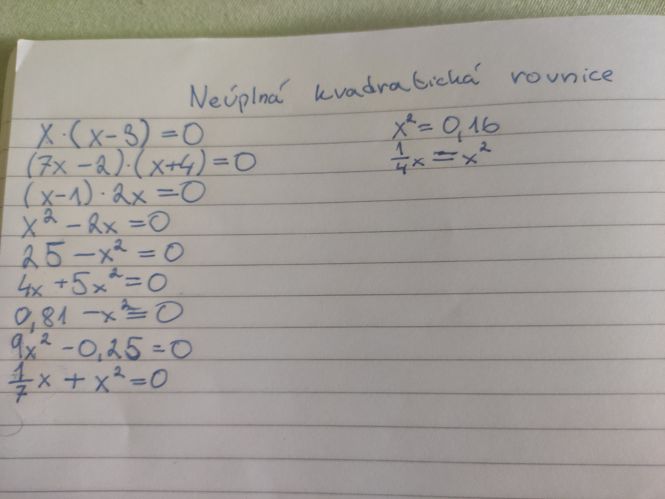 Neúplná kvadratická rovnice
x·(x-3)=0
(7x-2)·(x+4)=0
(x-1)·2x=0
x²-2x=0
25-x²=0
4x+5x²=0
0,81-x²=0
9x²-0,25=0
1/7x+x²=0
x²=0,16
1/4x=x²